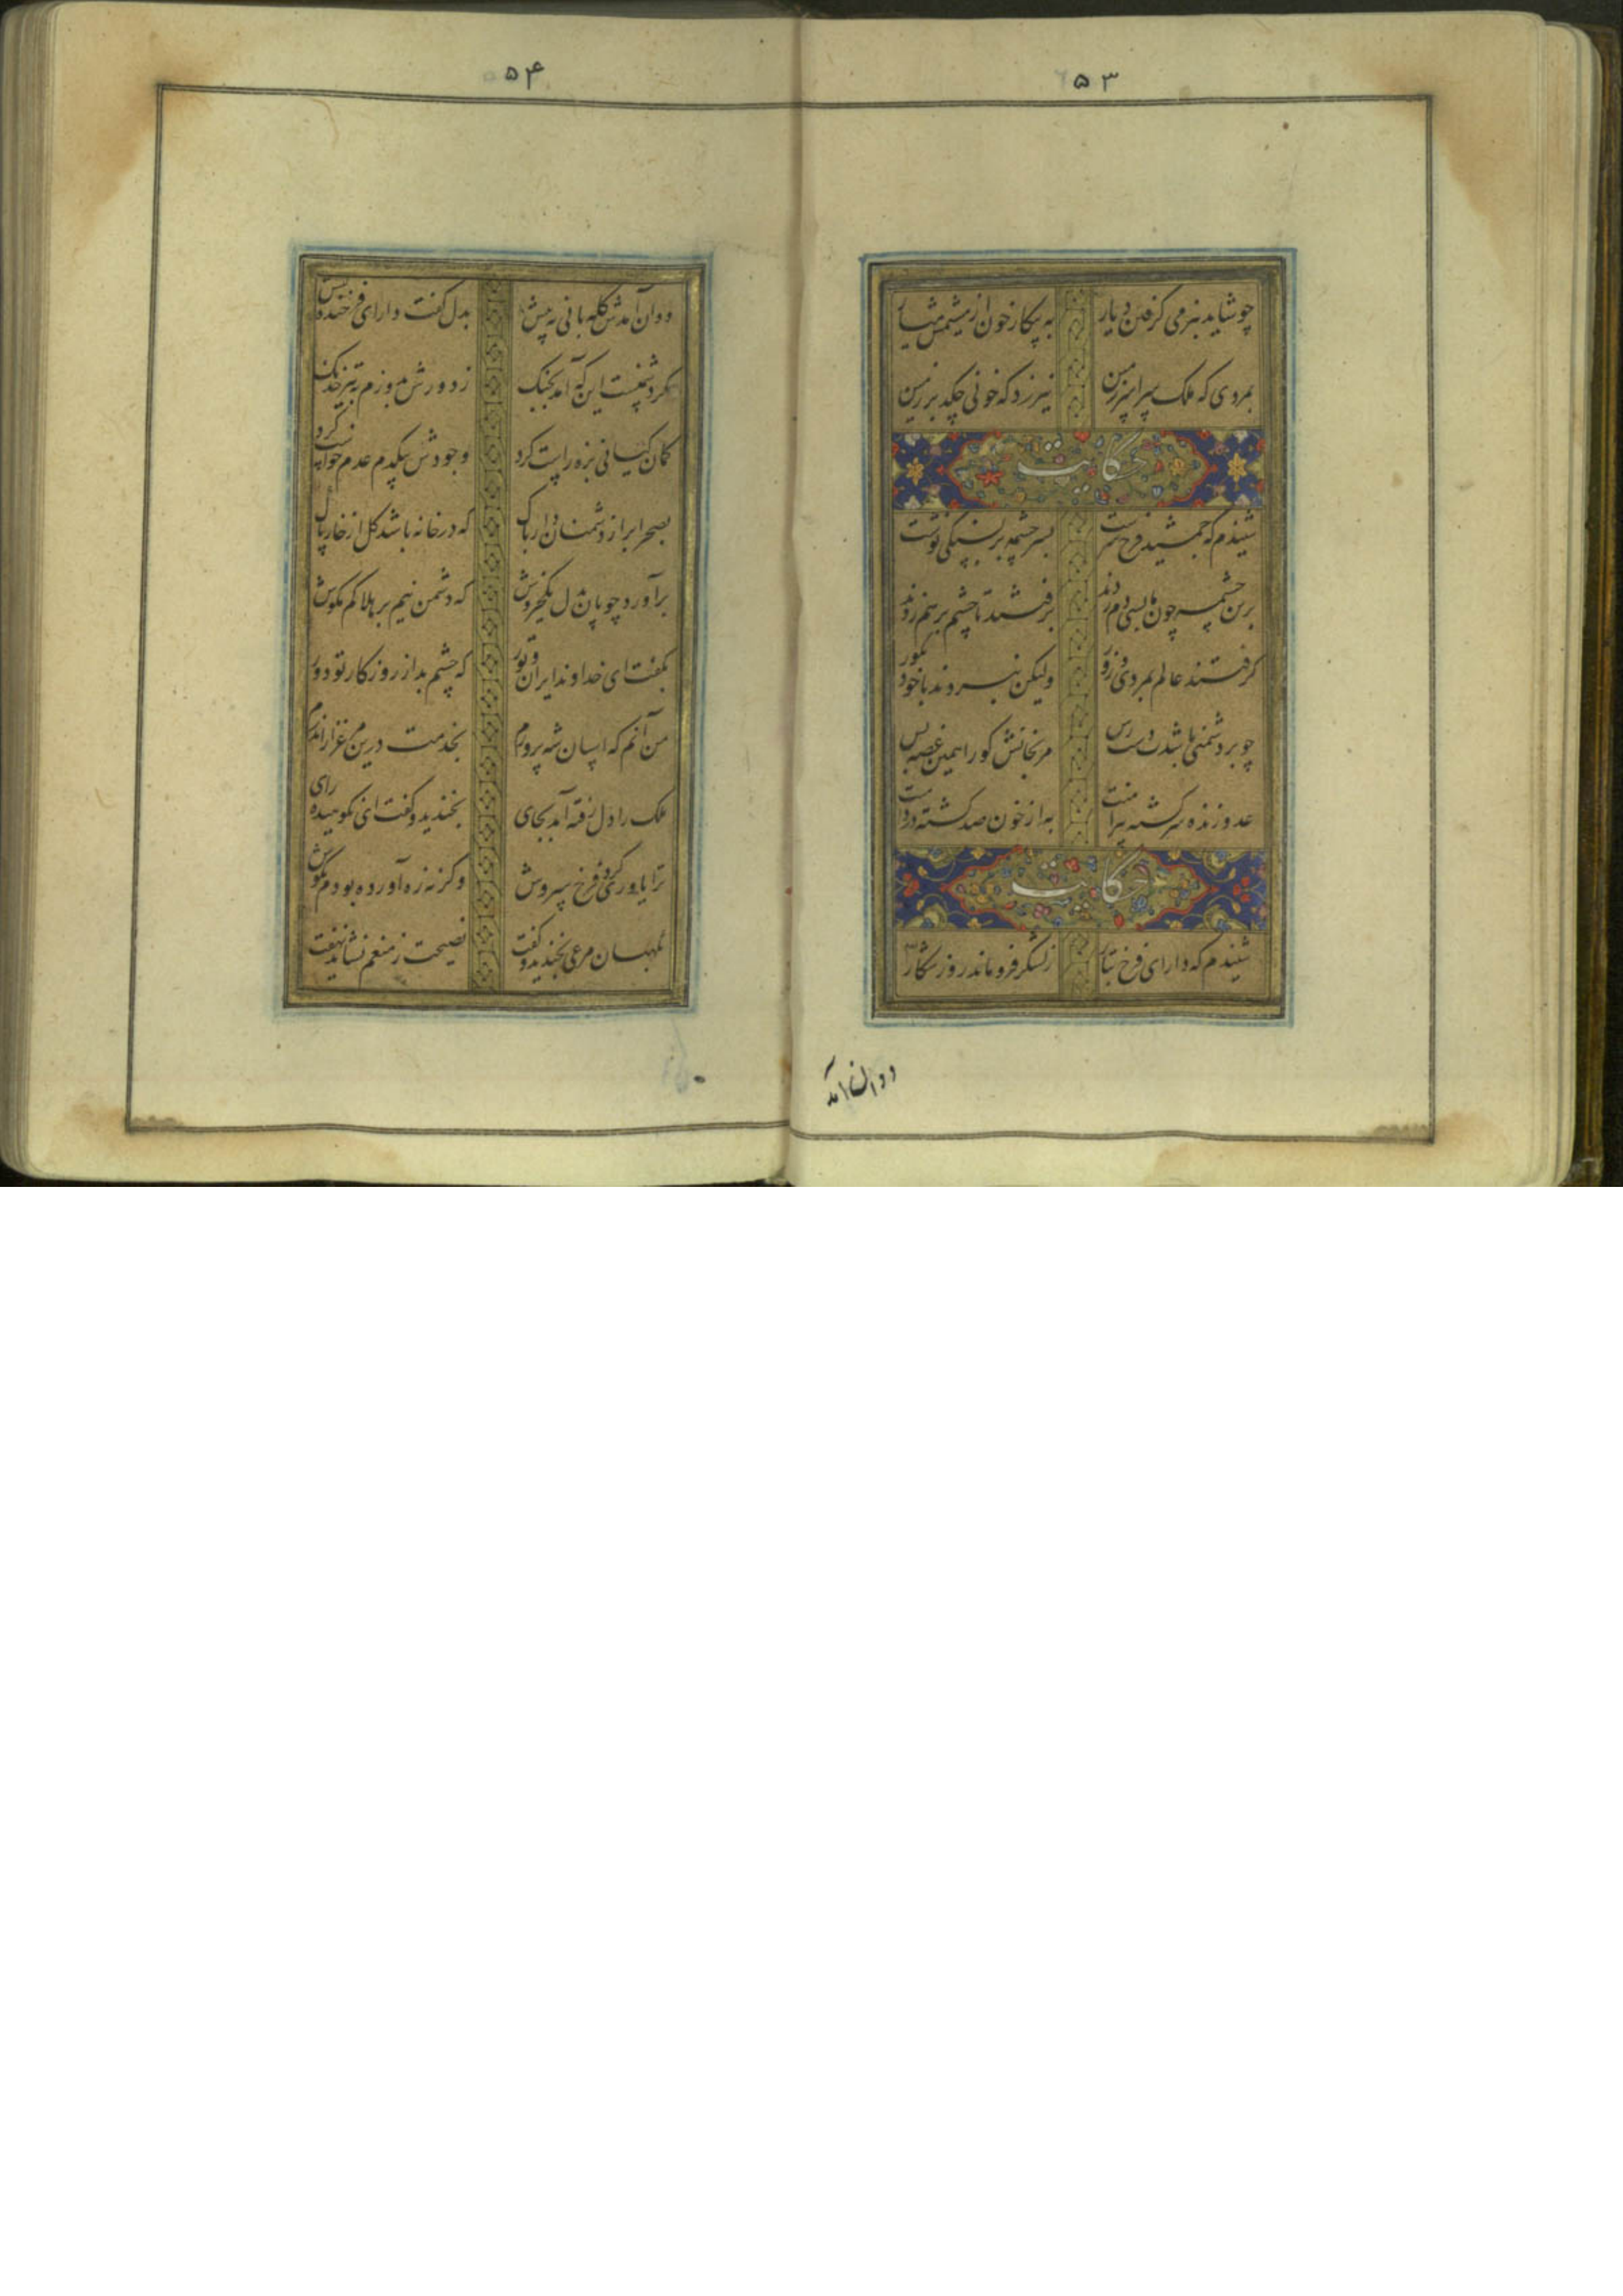 ۵۳
چو شاید بنرمی کرفتن دیار به پیکار خون از مشیمش میار
بمردی که ملک سراسر زمین نیرزد که خونی چکد بر زمین
حکایت
شنیدم که جمشید فرخ سرشت بسرچشمه بر بسنکی نوشت
برین چشمه چون ما بسی دم زدند برفتند تا چشم بر هم زدند
کرفتند عالم بمردی و زور ولیکن نبردند با خود بکور
چو بر دشمنی باشدت دست رس مرنجانش کو را همین غصه بس
عدو زنده سرکشته پیرامنت به از خون صد کشته در دامنت
حکایت
شنیدم که دارای فرخ تبار ز لشکر فرو ماند روز شکار
دوان آمد
۵۴
دوان آمدش کله بانی به پیش بدل کفت دارای فرخنده کیش
مکر دشمنست این که آمد بجنک ز دورش بدوزم بتیر خدنک
کمان کیانی بزه راست کرد وجودش بیکدم عدم خواست کرد
بصحرا بر از دشمنان دار باک که در خانه باشد کل از خار پاک
برآورد چوپان بدل یکخروش که دشمن نیم بر هلاکم مکوش
بکفت ای خداوند ایران و تور که چشم بد از روزکار تو دور
من آنم که اسپان شه پرورم بخدمت درین مرغزار اندرم
ملک را دل رفته آمد بجای بخندید و کفت ای نکوهیده رای
ترا یاوری کرد فرخ سروش وکرنه زه آورده بودم بکوش
نکهبان مرعی بخندید و کفت نصیحت ز منعم نشاید نهفت